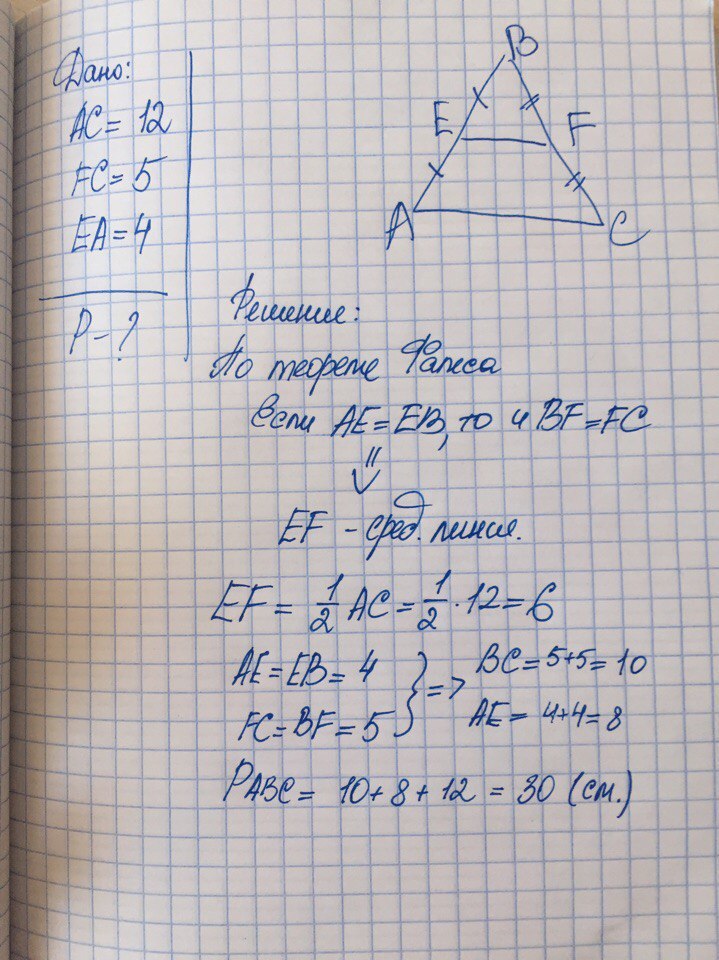 Дано:
AC = 12
FC = 5
EA = 4
P - ?
B
E
F
A
C
Решение:
По теореме Фалеса
если AE = EB, то и BF = FC
⇓
EF - сред. линия.
EF = 1/2 AC = 1/2 · 12 = 6
AE = EB = 4
FC = BF = 5
} =>
BC = 5+5 = 10
AE = 4+4 = 8
PABC = 10 + 8 + 12 = 30 (см.)